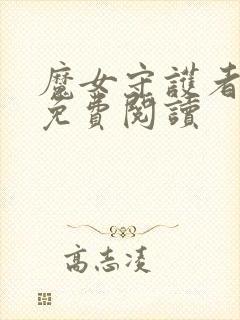 魔女守護者
免費閱讀
高志凌